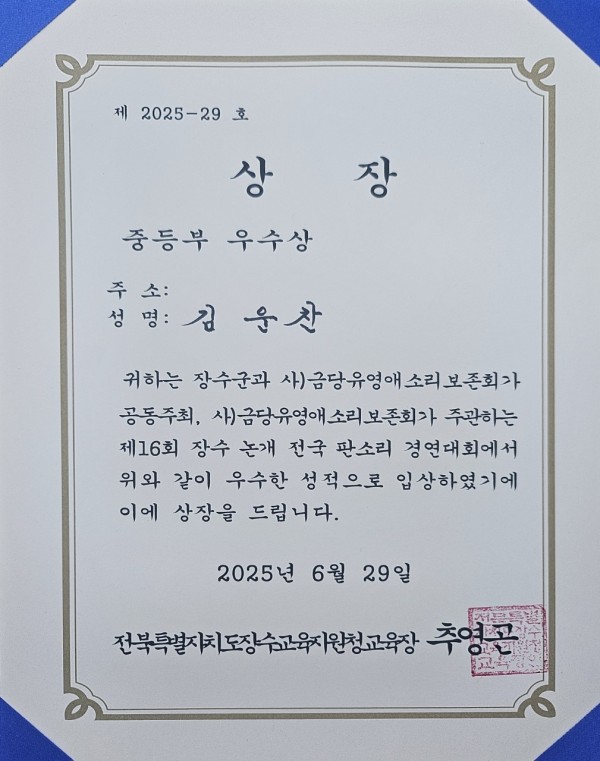 제 2025-29 호
상 장
중등부 우수상
주 소:
성 명: 김 운 찬
귀하는 장수군과 사)금당유영애소리보존회가
공동주최, 사)금당유영애소리보존회가 주관하는
제16회 장수 논개 전국 판소리 경연대회에서
위와 같이 우수한 성적으로 입상하였기에
이에 상장을 드립니다.
2025년 6월 29일
전북특별자치도장수교육지원청교육장 추영곤